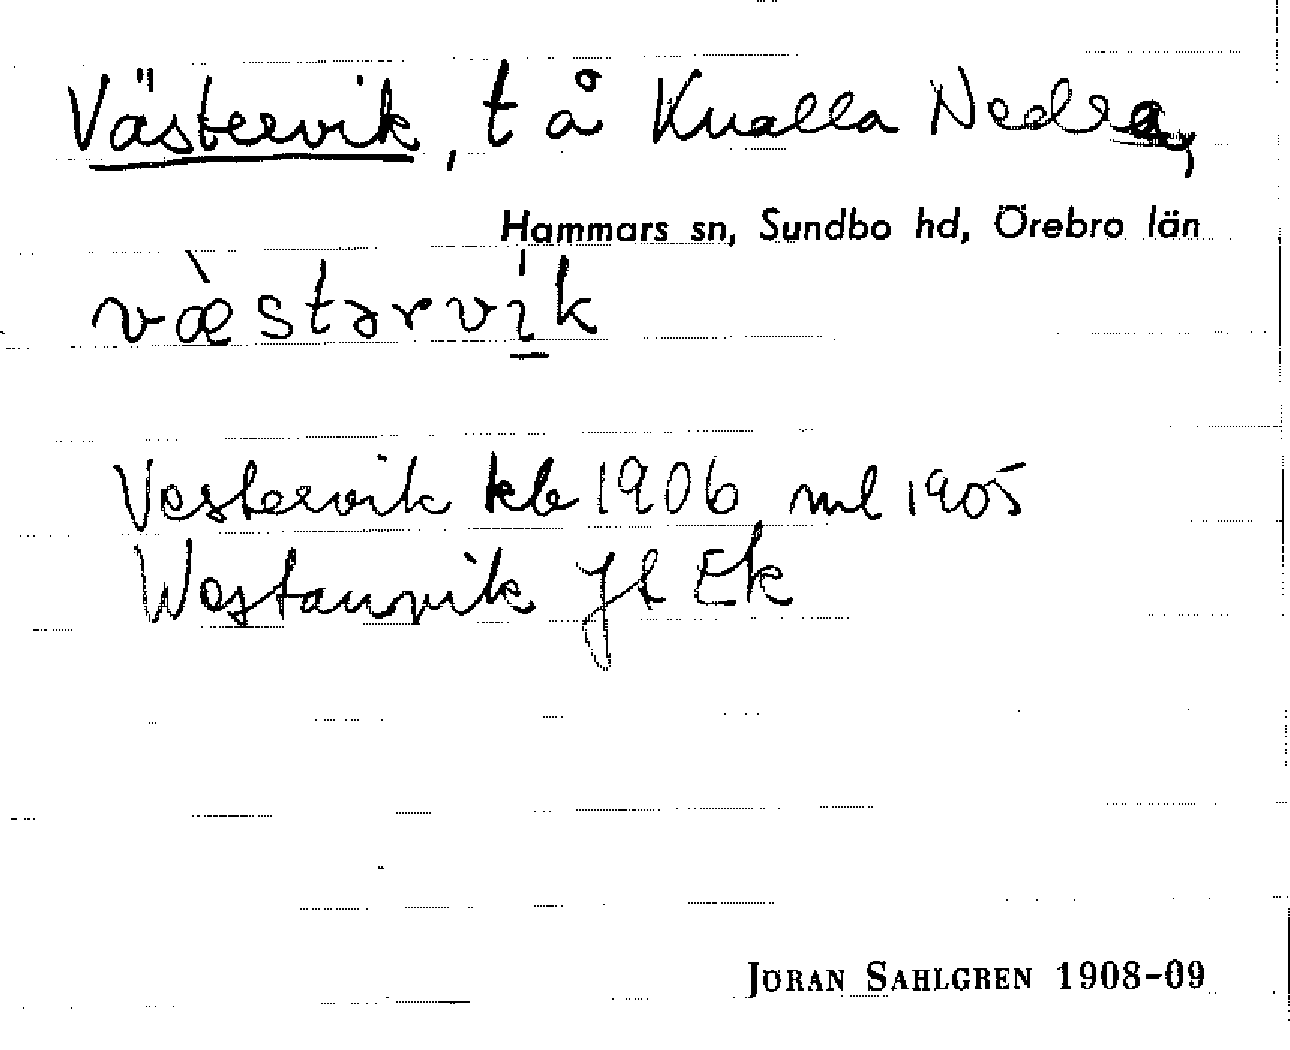 Västervik, t å Knalla Nedra,
Hammars sn, Sundbo hd, Örebro län
væ̀stərvík
Vestervik kb 1906 ml 1905
Westanvik Jl Ek
JÖRAN SAHLGREN 1908-09